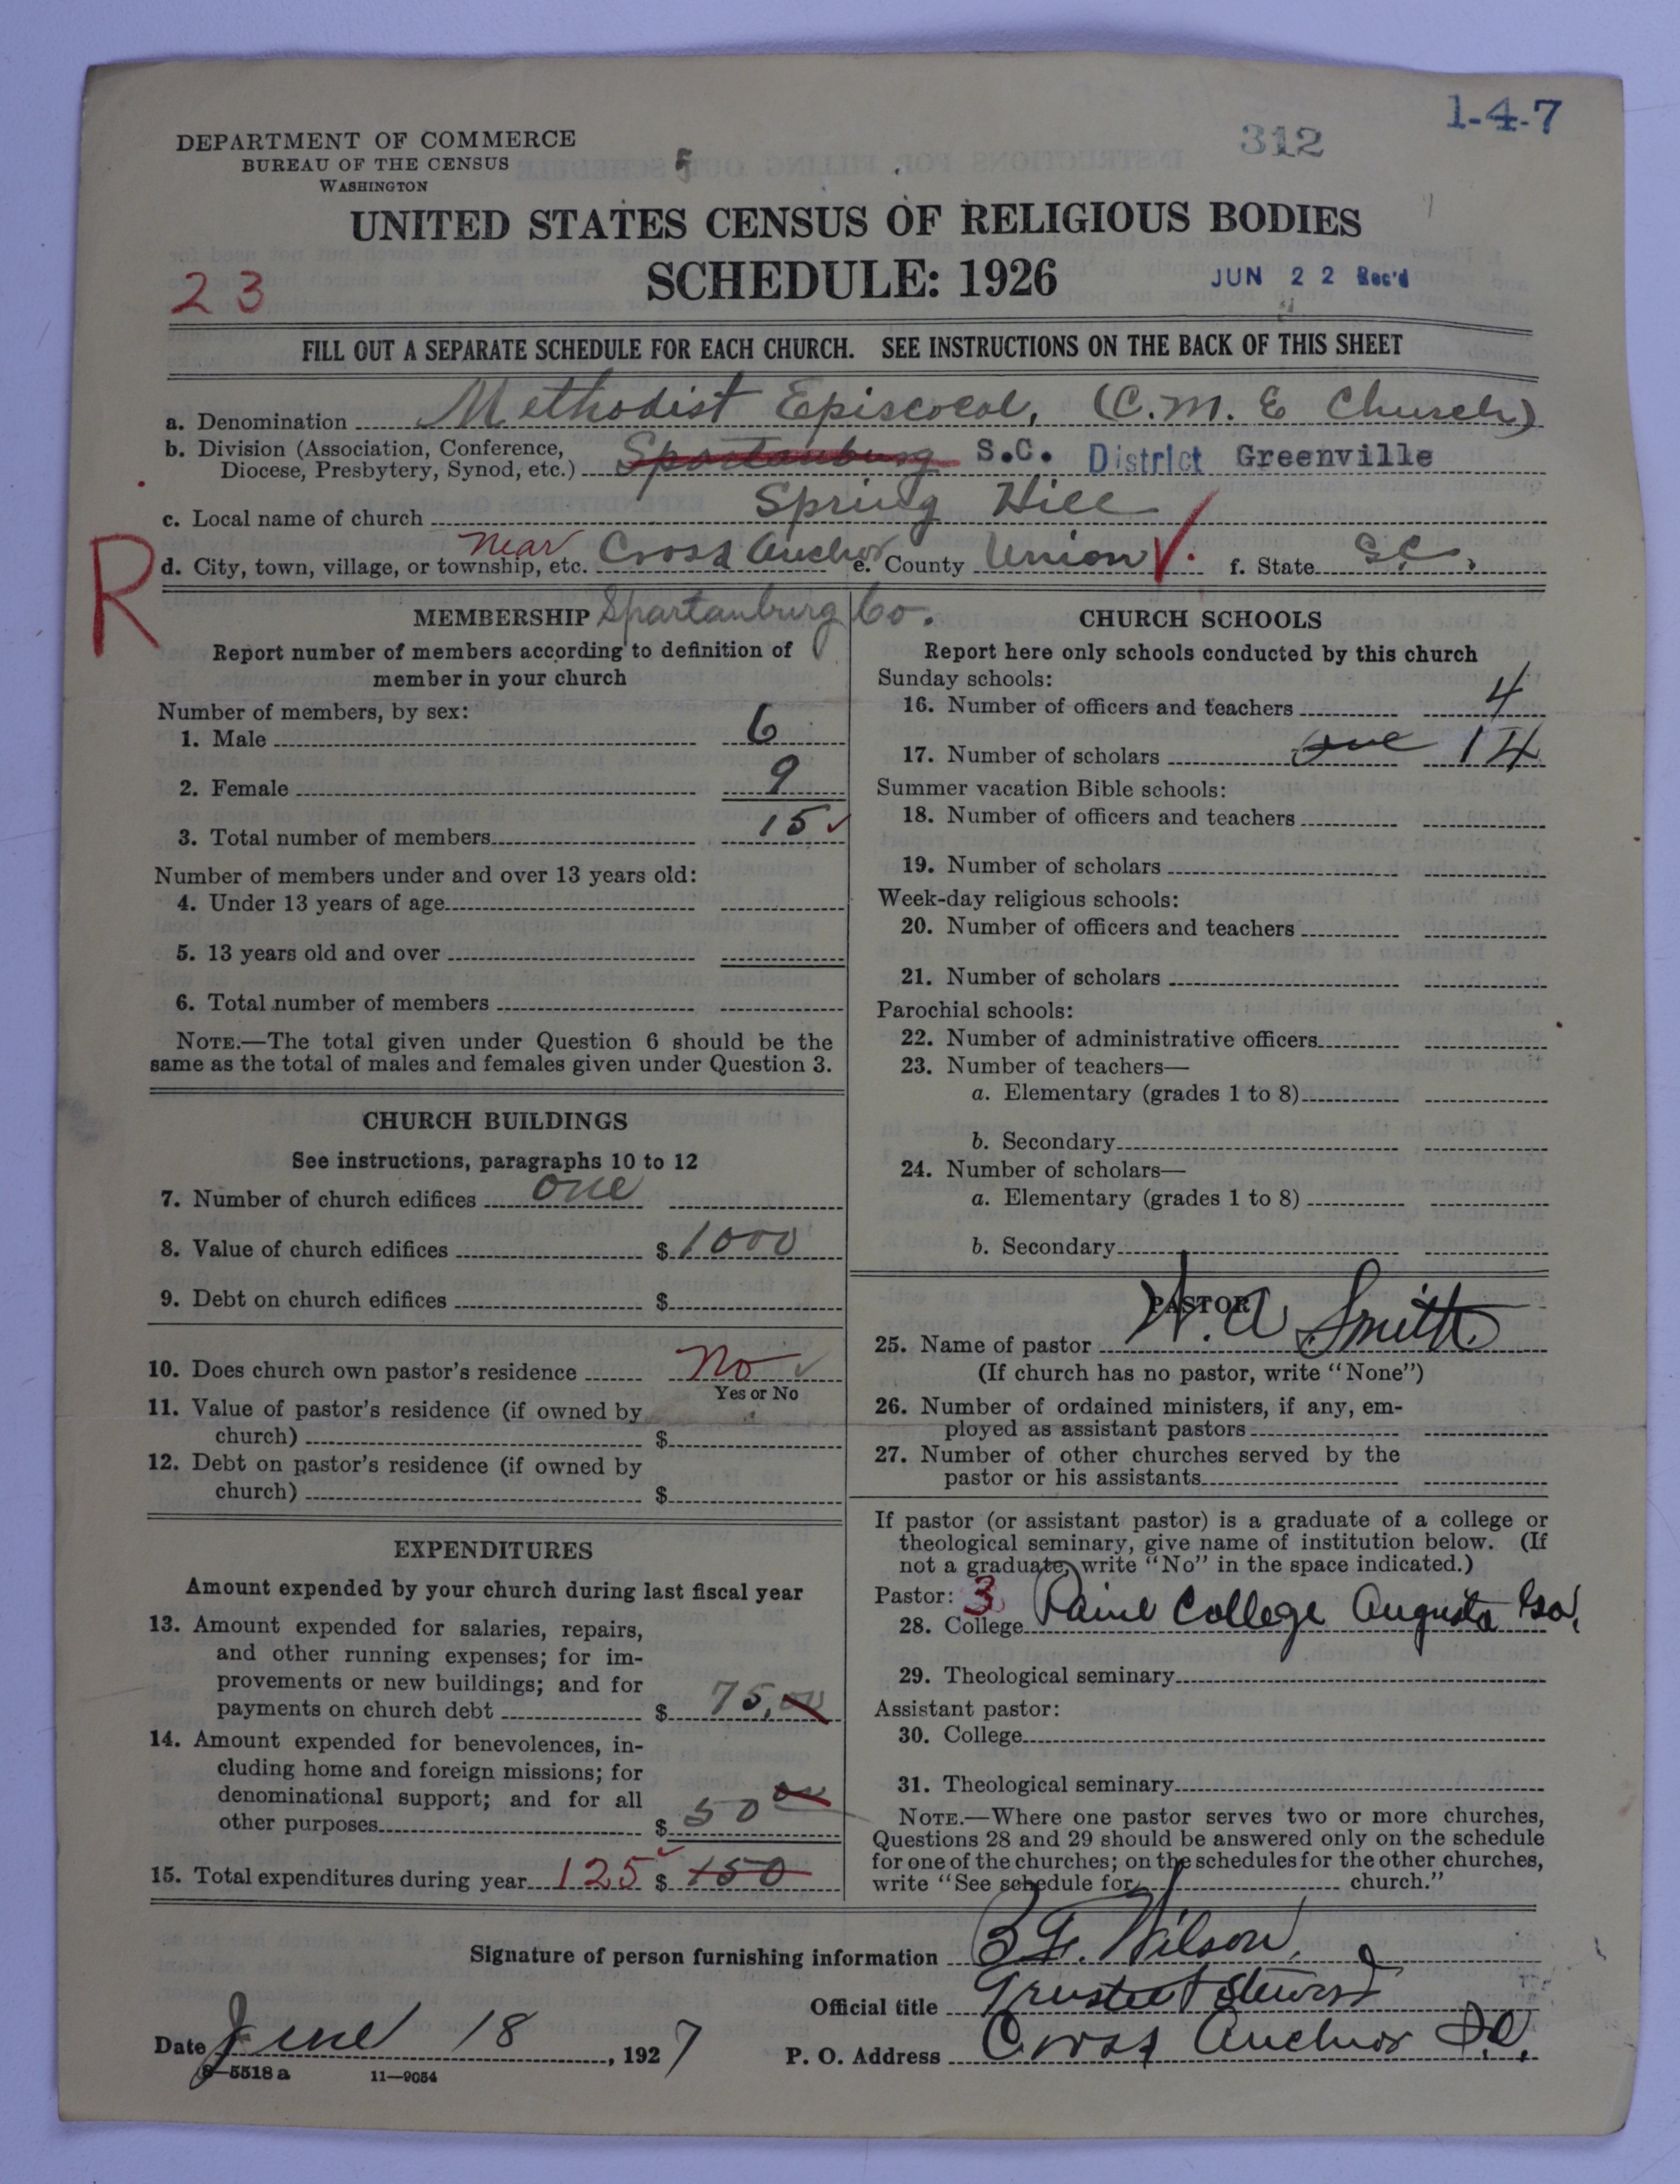 1-4-7
312
DEPARTMENT OF COMMERCE
BUREAU OF THE CENSUS
WASHINGTON
UNITED STATES CENSUS OF RELIGIOUS BODIES
SCHEDULE: 1926
JUN 22 Rec'd
23
FILL OUT A SEPARATE SCHEDULE FOR EACH CHURCH. SEE INSTRUCTIONS ON THE BACK OF THIS SHEET
a. Denomination Methodist Episcocal, (C.M.E Church)
b. Division (Association, Conference,
Diocese, Presbytery, Synod, etc.) Spartanburg S.C. District Greenville
c. Local name of church Spring Hill
R
d. City, town, village, or township, etc. near Cross Anchor e. County Union f. State S.C.
MEMBERSHIP Spartanburg Co.
Report number of members according to definition of
member in your church
Number of members, by sex:
1. Male 6
2. Female 9
3. Total number of members 15
Number of members under and over 13 years old:
4. Under 13 years of age
5. 13 years old and over
6. Total number of members
NOTE.—The total given under Question 6 should be the
same as the total of males and females given under Question 3.
CHURCH BUILDINGS
See instructions, paragraphs 10 to 12
7. Number of church edifices one
8. Value of church edifices $ 1000
9. Debt on church edifices $
10. Does church own pastor's residence No
Yes or No
11. Value of pastor's residence (if owned by
church) $
12. Debt on pastor's residence (if owned by
church) $
EXPENDITURES
Amount expended by your church during last fiscal year
13. Amount expended for salaries, repairs,
and other running expenses; for im-
provements or new buildings; and for
payments on church debt $ 75.00
14. Amount expended for benevolences, in-
cluding home and foreign missions; for
denominational support; and for all
other purposes $ 50 00
15. Total expenditures during year 125 $ 150
CHURCH SCHOOLS
Report here only schools conducted by this church
Sunday schools:
16. Number of officers and teachers 4
17. Number of scholars one 14
Summer vacation Bible schools:
18. Number of officers and teachers
19. Number of scholars
Week-day religious schools:
20. Number of officers and teachers
21. Number of scholars
Parochial schools:
22. Number of administrative officers
23. Number of teachers—
a. Elementary (grades 1 to 8)
b. Secondary
24. Number of scholars—
a. Elementary (grades 1 to 8)
b. Secondary
PASTOR
25. Name of pastor W. A Smith
(If church has no pastor, write "None")
26. Number of ordained ministers, if any, em-
ployed as assistant pastors
27. Number of other churches served by the
pastor or his assistants
If pastor (or assistant pastor) is a graduate of a college or
theological seminary, give name of institution below. (If
not a graduate, write "No" in the space indicated.)
Pastor: 3
28. College Paine College Augusta Ga,
29. Theological seminary
Assistant pastor:
30. College
31. Theological seminary
NOTE.—Where one pastor serves two or more churches,
Questions 28 and 29 should be answered only on the schedule
for one of the churches; on the schedules for the other churches,
write "See schedule for church."
Signature of person furnishing information Wilson,
Official title Trustee & Steward
Date June 18, 1927
P. O. Address Cross Anchor S.C.
8—5518 a 11—9054